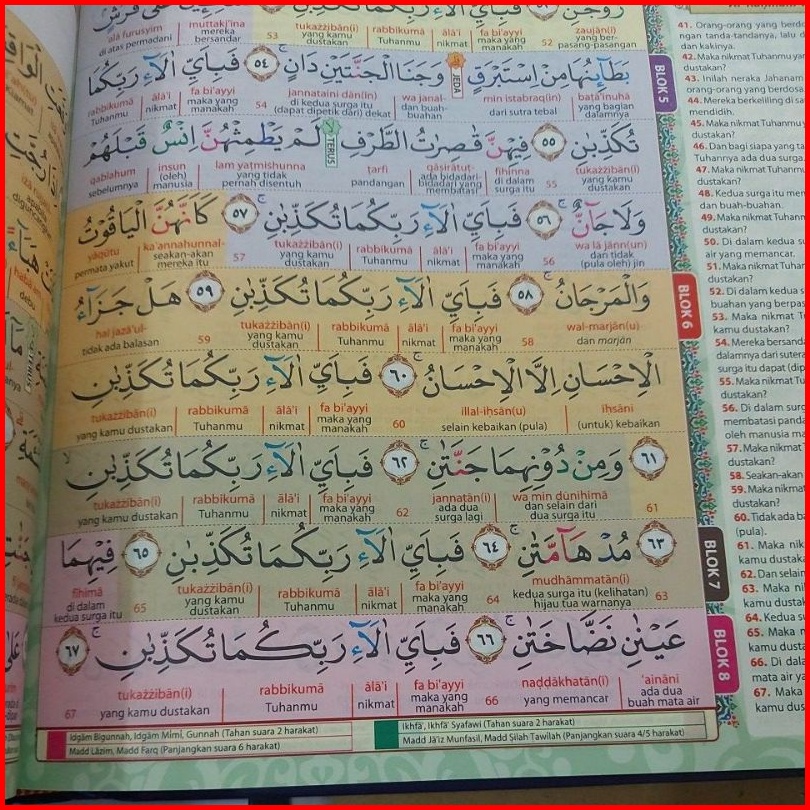 زَوْجٰنِ ۚ ٥٢ فَبِاَيِّ اٰلَاۤءِ رَبِّكُمَا تُكَذِّبٰنِ ٥٣ عَلٰى فُرُشٍ
'alā furusyim di atas permadani muttaki'īna mereka bersandar 53 tukażżibān(i) yang kamu dustakan rabbikumā Tuhanmu ālā'i nikmat fa bi'ayyi maka yang manakah 52 zaujān(i) yang ber-pasang-pasangan
بَطَاۤىِٕنُهَا مِنْ اِسْتَبْرَقٍۗ وَجَنَا الْجَنَّتَيْنِ دَانٍۚ ٥٤ فَبِاَيِّ اٰلَاۤءِ رَبِّكُمَا
rabbikumā Tuhanmu ālā'i nikmat fa bi'ayyi maka yang manakah 54 jannataini dān(in) di kedua surga itu (dapat dipetik dari) dekat wa janal- dan buah-buahan min istabraq(in) dari sutra tebal baṭā'inuhā yang bagian dalamnya
JEDA
BLOK 5
تُكَذِّبٰنِ ٥٥ فِيْهِنَّ قٰصِرٰتُ الطَّرْفِۙ لَمْ يَطْمِثْهُنَّ اِنْسٌ قَبْلَهُمْ
TERUS
qablahum sebelumnya insun (oleh) manusia lam yaṭmiṡhunna yang tidak pernah disentuh ṭarfi pandangan qāṣirātuṭ- ada bidadari-bidadari yang membatasi fīhinna di dalam surga itu 55 tukażżibān(i) yang kamu dustakan
وَلَا جَاۤنٌّۚ ٥٦ فَبِاَيِّ اٰلَاۤءِ رَبِّكُمَا تُكَذِّبٰنِۚ ٥٧ كَاَنَّهُنَّ الْيَاقُوْتُ
yāqūtu permata yakut ka'annahunnal- seakan-akan mereka itu 57 tukażżibān(i) yang kamu dustakan rabbikumā Tuhanmu ālā'i nikmat fa bi'ayyi maka yang manakah 56 wa lā jānn(un) dan tidak (pula oleh) jin
وَالْمَرْجَانُۚ ٥٨ فَبِاَيِّ اٰلَاۤءِ رَبِّكُمَا تُكَذِّبٰنِ ٥٩ هَلْ جَزَاۤءُ
BLOK 6
hal jazā'ul- tidak ada balasan 59 tukażżibān(i) yang kamu dustakan rabbikumā Tuhanmu ālā'i nikmat fa bi'ayyi maka yang manakah 58 wal-marjān(u) dan marjān
الْاِحْسَانِ اِلَّا الْاِحْسَانُۚ ٦٠ فَبِاَيِّ اٰلَاۤءِ رَبِّكُمَا تُكَذِّبٰنِ
tukażżibān(i) yang kamu dustakan rabbikumā Tuhanmu ālā'i nikmat fa bi'ayyi maka yang manakah 60 illal-iḥsān(u) selain kebaikan (pula) iḥsāni (untuk) kebaikan
٦١ وَمِنْ دُوْنِهِمَا جَنَّتٰنِۚ ٦٢ فَبِاَيِّ اٰلَاۤءِ رَبِّكُمَا تُكَذِّبٰنِۙ
tukażżibān(i) yang kamu dustakan rabbikumā Tuhanmu ālā'i nikmat fa bi'ayyi maka yang manakah 62 jannatān(i) ada dua surga lagi wa min dūnihimā dan selain dari dua surga itu 61
٦٣ مُدْهَاۤمَّتٰنِۚ ٦٤ فَبِاَيِّ اٰلَاۤءِ رَبِّكُمَا تُكَذِّبٰنِۚ ٦٥ فِيْهِمَا
BLOK 7
fīhimā di dalam kedua surga itu 65 tukażżibān(i) yang kamu dustakan rabbikumā Tuhanmu ālā'i nikmat fa bi'ayyi maka yang manakah 64 mudhāmmatān(i) kedua surga itu (kelihatan) hijau tua warnanya 63
عَيْنٰنِ نَضَّاخَتٰنِۚ ٦٦ فَبِاَيِّ اٰلَاۤءِ رَبِّكُمَا تُكَذِّبٰنِۚ ٦٧
BLOK 8
67 tukażżibān(i) yang kamu dustakan rabbikumā Tuhanmu ālā'i nikmat fa bi'ayyi maka yang manakah 66 naḍḍākhatān(i) yang memancar 'aināni ada dua buah mata air
Idgām Bigunnah, Idgām Mīmī, Gunnah (Tahan suara 2 harakat)
Madd Lāzim, Madd Farq (Panjangkan suara 6 harakat)
Ikhfā', Ikhfā' Syafawi (Tahan suara 2 harakat)
Madd Jā'iz Munfasil, Madd Ṣilah Ṭawīlah (Panjangkan suara 4/5 harakat)
41. Orang-orang yang berd
ngan tanda-tandanya, lalu d
dan kakinya.
42. Maka nikmat Tuhanmu yan
dustakan?
43. Inilah neraka Jahanam
orang-orang yang berdosa.
44. Mereka berkeliling di sa
mendidih.
45. Maka nikmat Tuhanmu y
dustakan?
46. Dan bagi siapa yang ta
Tuhannya ada dua surga.
47. Maka nikmat Tuhanmu
dustakan?
48. Kedua surga itu mem
dan buah-buahan.
49. Maka nikmat Tuhanm
dustakan?
50. Di dalam kedua su
air yang memancar.
51. Maka nikmat Tuhan
dustakan?
52. Di dalam kedua s
buahan yang berpas
53. Maka nikmat T
kamu dustakan?
54. Mereka bersand
dalamnya dari sutera
surga itu dapat (dip
55. Maka nikmat Tu
dustakan?
56. Di dalam surg
membatasi panda
oleh manusia ma
57. Maka nikmat
dustakan?
58. Seakan-akan
59. Maka nikmat
dustakan?
60. Tidak ada ba
(pula).
61. Maka nik
kamu dustaka
62. Dan selain
63. Maka ni
kamu dustak
64. Kedua su
65. Maka n
kamu dust
66. Di dala
mata air ya
67. Maka
kamu dus